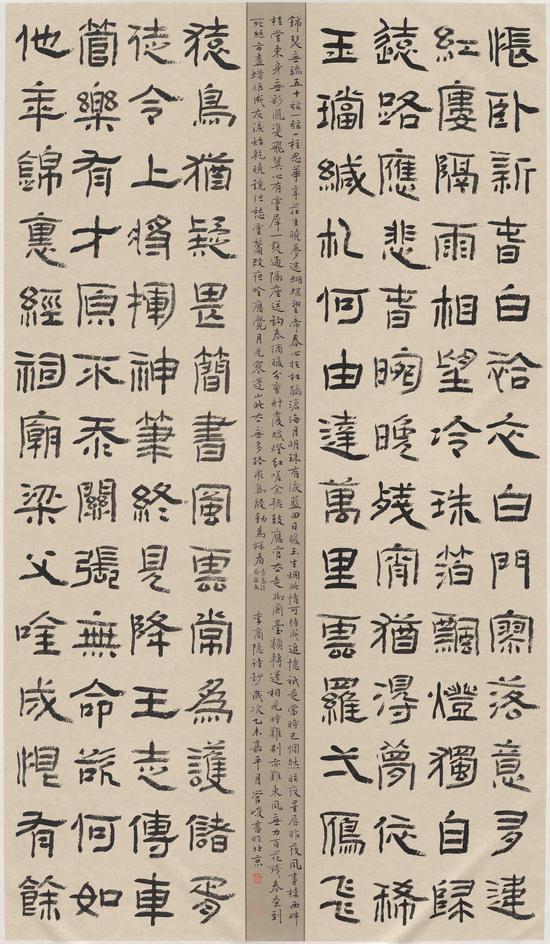 悵臥新春白袷衣白門寥落意多違
紅廔隔雨相望冷珠箔飄燈獨自歸
遠路應悲春晼晚殘宵猶得夢依稀
玉璫緘札何由達萬里雲羅弌鴈飛
錦瑟無端五十弦一弦一柱思華年莊生曉夢迷蝴蝶望帝春心托杜鵑滄海月明珠有淚藍田日暖玉生烟此情可待成追憶祇是當時已惘然昨夜星辰昨夜風畫樓西畔
桂堂東身無彩鳳雙飛翼心有靈犀一點通隔座送鉤春酒暖分曹射覆蠟燈紅嗟余聽鼓應官去走馬蘭臺類轉蓬相見時難別亦難東風無力百花殘春蠶到
死絲方盡蠟炬成灰淚始乾曉鏡但愁雲鬢改夜吟應覺月光寒蓬山此去無多路青鳥殷勤為探看 李商隱詩鈔歲次乙未嘉平月管峻書於北京
猿鳥猶疑畏簡書風雲常為護儲胥
徒令上將揮神筆終見降王走傳車
管樂有才原不忝關張無命欲何如
他年錦裏經祠廟梁父吟成恨有餘